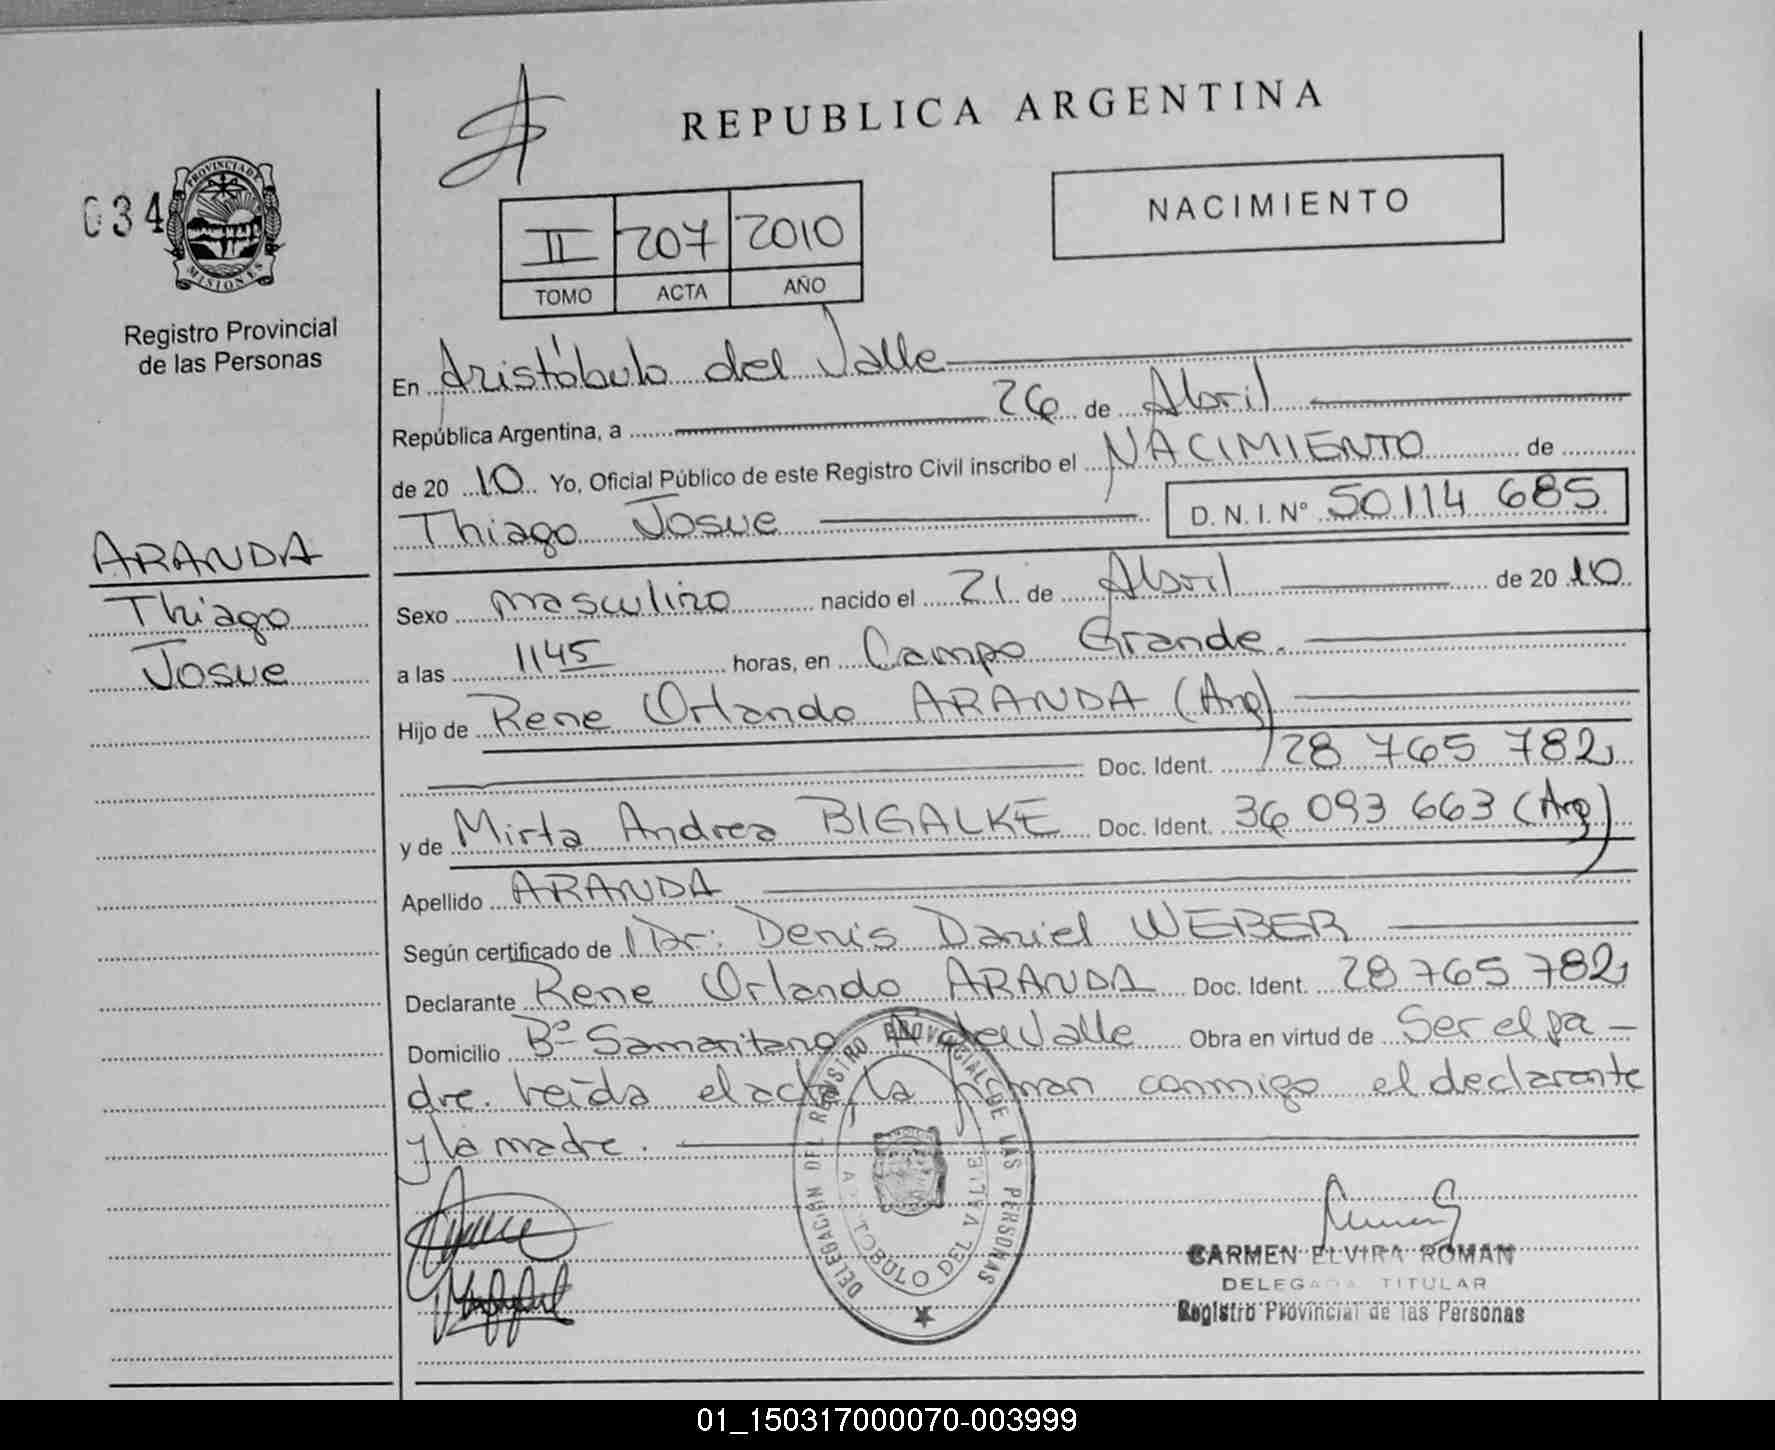 REPUBLICA ARGENTINA
034
PROVINCIA DE MISIONES
Registro Provincial
de las Personas
NACIMIENTO
II 207 2010
TOMO ACTA AÑO
En Aristóbulo del Valle
República Argentina, a 26 de Abril
de 20 10 Yo, Oficial Público de este Registro Civil inscribo el NACIMIENTO de
Thiago Josue D.N.I. N° 50114 685
ARANDA
Thiago
Josue
Sexo masculino nacido el 21 de Abril de 20 10
a las 1145 horas, en Campo Grande.
Hijo de Rene Orlando ARANDA (Arg)
Doc. Ident. 28 765 782
y de Mirta Andrea BIGALKE Doc. Ident. 36 093 663 (Arg)
Apellido ARANDA
Según certificado de Dr: Denis Daniel WEBER
Declarante Rene Orlando ARANDA Doc. Ident. 28 765 782
Domicilio Bº Samaritano A del Valle Obra en virtud de Ser el pa-
dre. leída el acta, la firman conmigo el declarante
y la madre.
DELEGACION DEL REGISTRO PROVINCIAL DE LAS PERSONAS
ARISTOBULO DEL VALLE
CARMEN ELVIRA ROMAN
DELEGADA TITULAR
Registro Provincial de las Personas
01_150317000070-003999